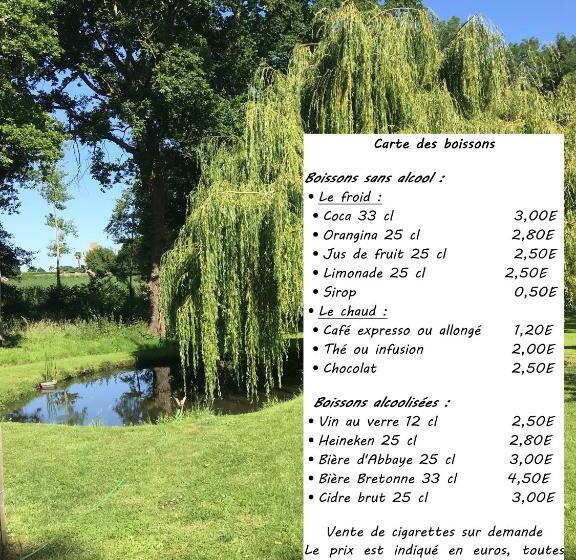 Carte des boissons
Boissons sans alcool :
• Le froid :
• Coca 33 cl 3,00E
• Orangina 25 cl 2,80E
• Jus de fruit 25 cl 2,50E
• Limonade 25 cl 2,50E
• Sirop 0,50E
• Le chaud :
• Café expresso ou allongé 1,20E
• Thé ou infusion 2,00E
• Chocolat 2,50E
Boissons alcoolisées :
• Vin au verre 12 cl 2,50E
• Heineken 25 cl 2,80E
• Bière d'Abbaye 25 cl 3,00E
• Bière Bretonne 33 cl 4,50E
• Cidre brut 25 cl 3,00E
Vente de cigarettes sur demande
Le prix est indiqué en euros, toutes